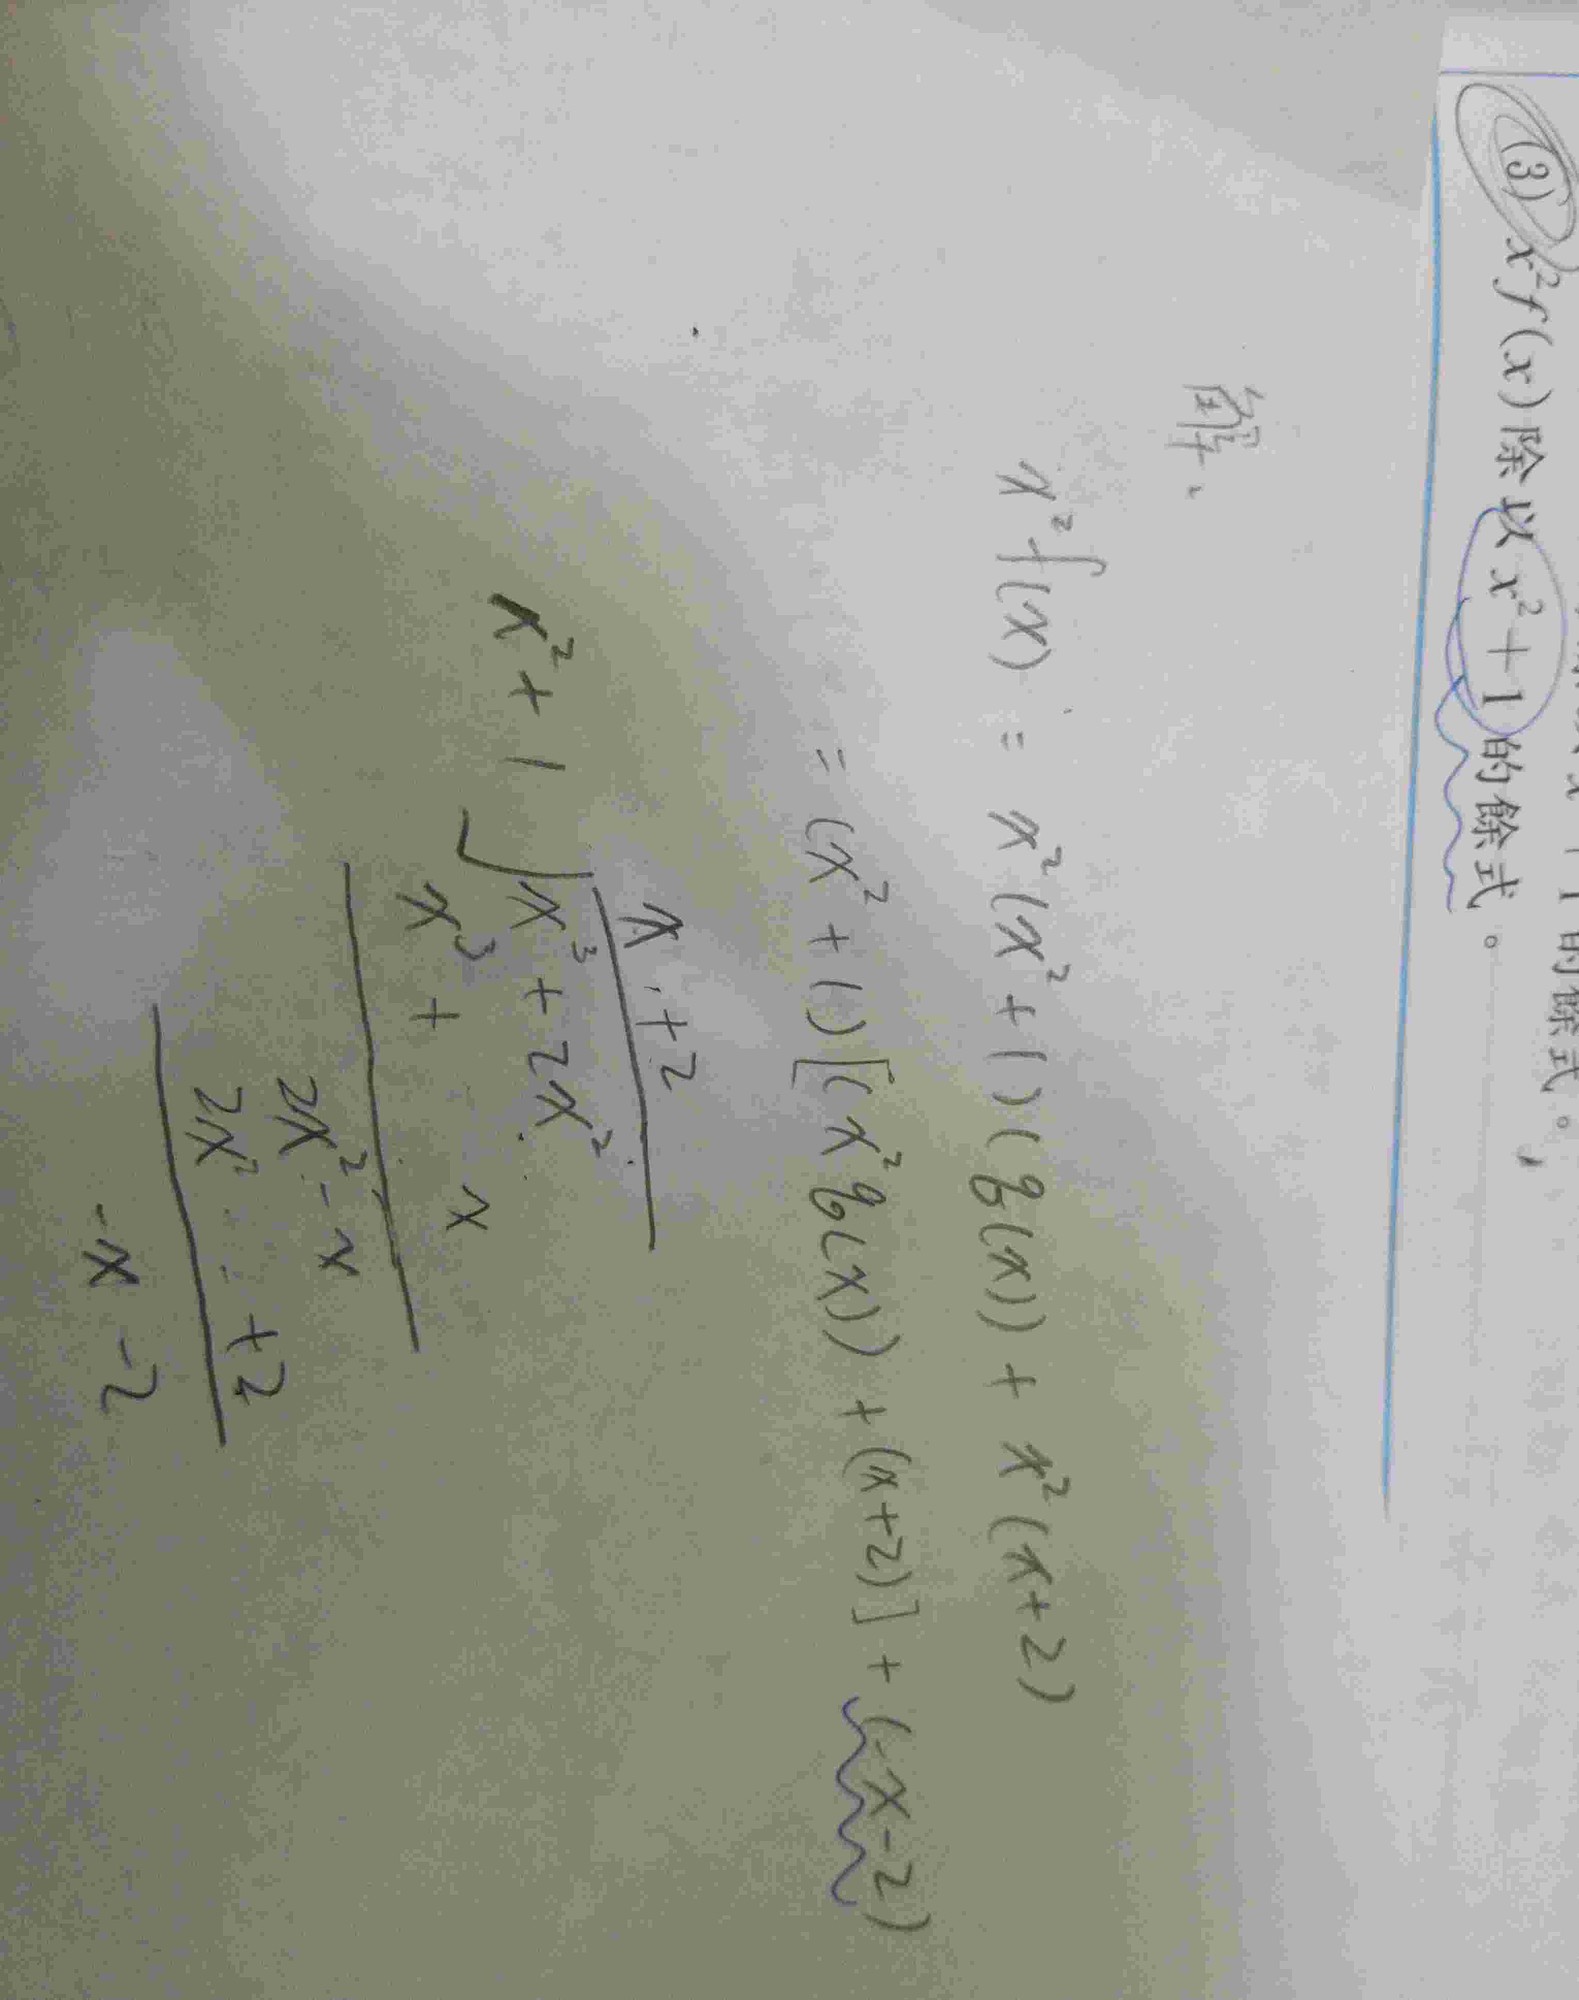 的餘式。
(3) x²f(x)除以x²+1的餘式。
解、
x²f(x) = x²(x²+1)(q(x)) + x²(x+2)
= (x²+1)[(x²q(x)) + (x+2)] + (-x-2)
x+2
x²+1 x³+2x²
x³+ x
2x²-x
2x² +2
-x-2